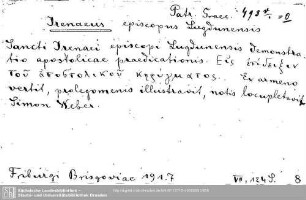 Patr. Graec. 493
Irenaeus episcopus Lugdunensis
Sancti Irenaei episcopi Lugdunensis Demonstra-
tio apostolicae praedicationis. Εἰς ἐπίδειξιν
τοῦ ἀποστολικοῦ κηρύγματος. Ex armeno
vertit, prolegomenis illustravit, notis locupletavit
Simon Weber.
Friburgi Brisgoviae 1917 VII, 124 S. 8
Sächsische Landesbibliothek -
Staats- und Universitätsbibliothek Dresden